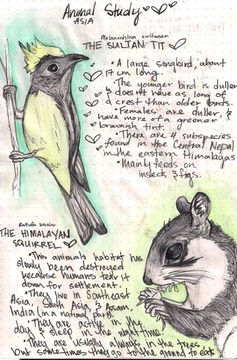 Animal Study
ASIA
Melanochlora sultanea
THE SULTAN TIT
• A large songbird, about
17 cm long.
• The younger bird is duller
& doesn't have as long of
a crest than older birds.
• Females are duller, &
have more of a greener
brownish tint.
• There are 4 subspecies
found in the Central Nepal
in the eastern Himalayas
• Mainly feeds on
insects & figs.
THE HIMALAYAN
SQUIRREL
• This animals habitat has
slowly been destroyed
because humans took it
down for settlement.
• They live in Southeast
Asia, South Asia, & Assam,
India (in a national park).
• They are active in the
day & sleep in the nighttime.
• They are usually always in the trees
but sometimes they go to the ground to eat